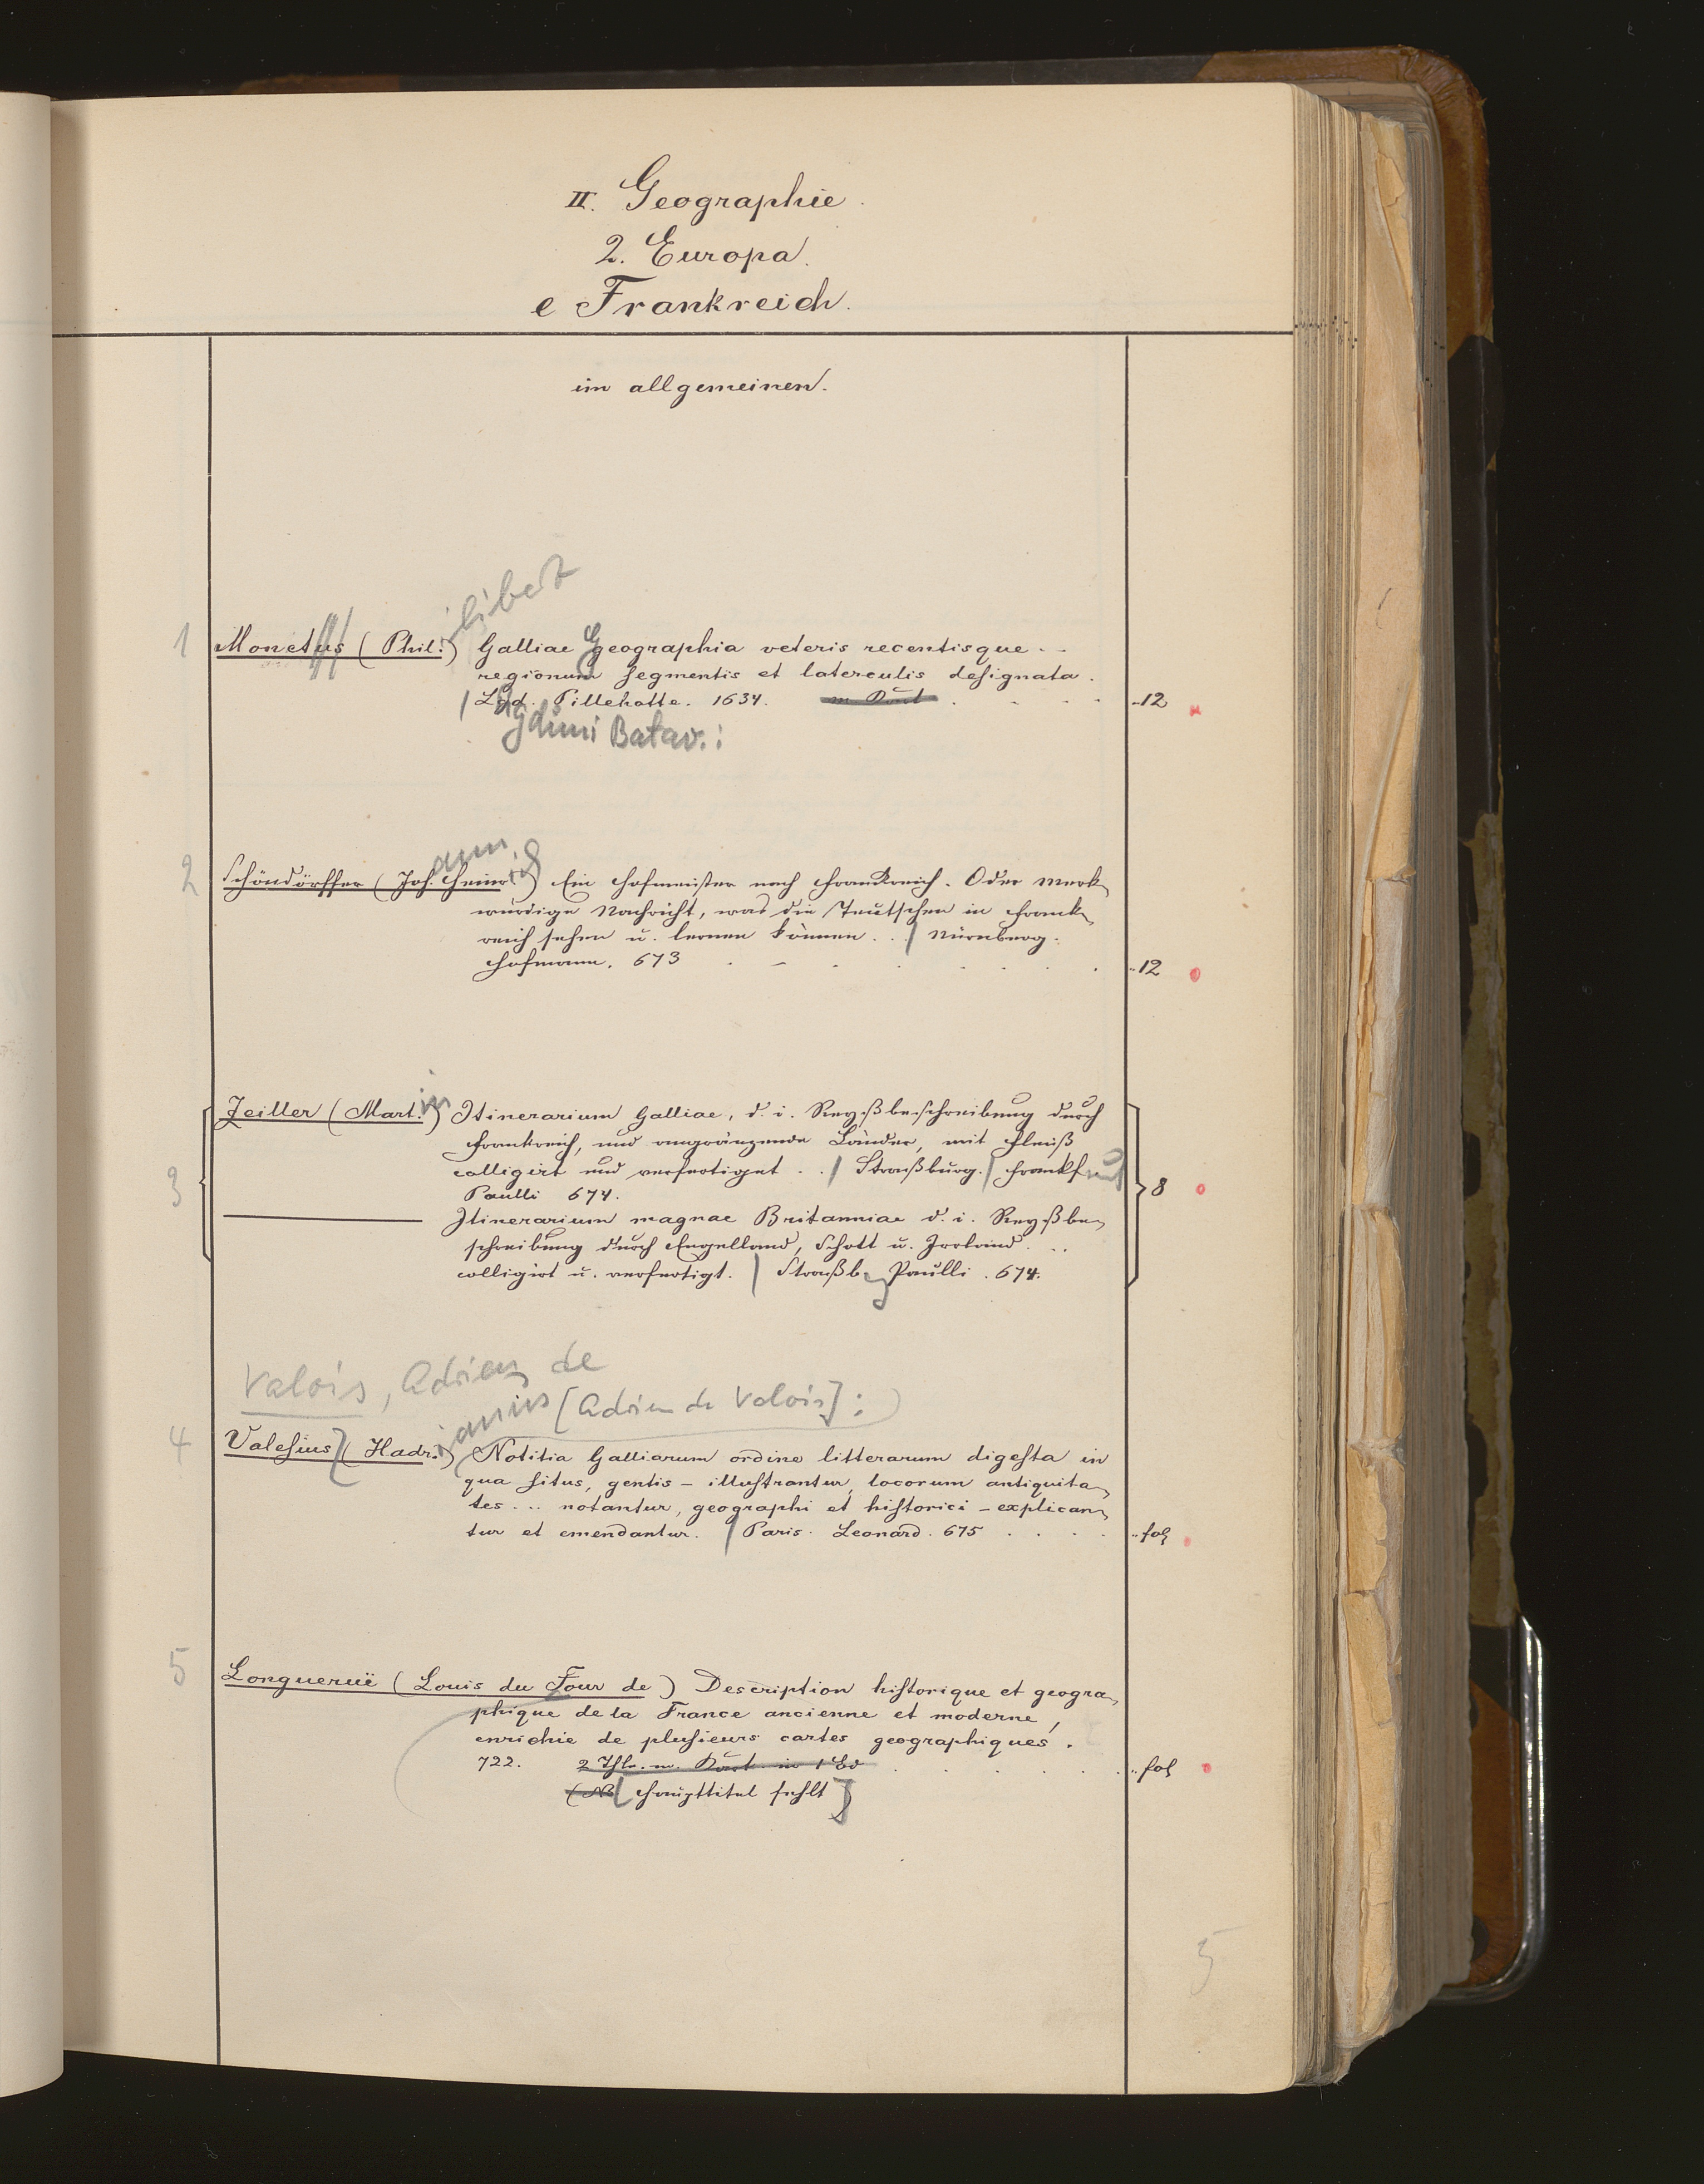 II. Geographie.
2. Europa.
e Frankreich.
im allgemeinen.
ilibert
1 Monetus (Phil.) Galliae Geographia veteris recentisque . .
regionum segmentis et laterculis designata.
Lgd. Pillehotte. 1634. m Port . . . . 12
gduni Batav.:
ann ich
2 Schöndörffer (Joh. Heinr.) Ein Hofmeister nach Frankreich. Oder Merk-
würdige Nachricht, was die Teutschen in Frank-
reich sehen u. lernen können . . / Nürnberg.
Hofmann. 673 . . . . . 12
Zeiller (Martin) Itinerarium Galliae, d. i. Reyßbeschreibung durch
Frankreich, und angränzende Länder, mit Fleiß
colligirt und verfertiget . . / Straßburg. / Frankfurt
3 Paulli 674. 8
Itinerarium magnae Britanniae d. i. Reyßbe-
schreibung durch Engelland, Schott u. Irrland . . .
colligirt u. verfertigt. / Straßbg Paulli. 674.
Valois, Adrien de
ianus [Adrien de Valois]:
4 Valesius] (Hadr.) Notitia Galliarum ordine litterarum digesta in
qua situs, gentis – illustrantur, locorum antiquita-
tes . . . notantur, geographi et historici – explican-
tur et emendantur. / Paris. Leonard. 675 . . . . fol
5 Longueruë (Louis du Four de) Description historique et geogra-
phique de la France ancienne et moderne,
enrichie de plusieurs cartes geographiques.
722. 2 Thle. m. Port. in 1 Bd . . . . . fol
(NB [Haupttitel fehlt]
5